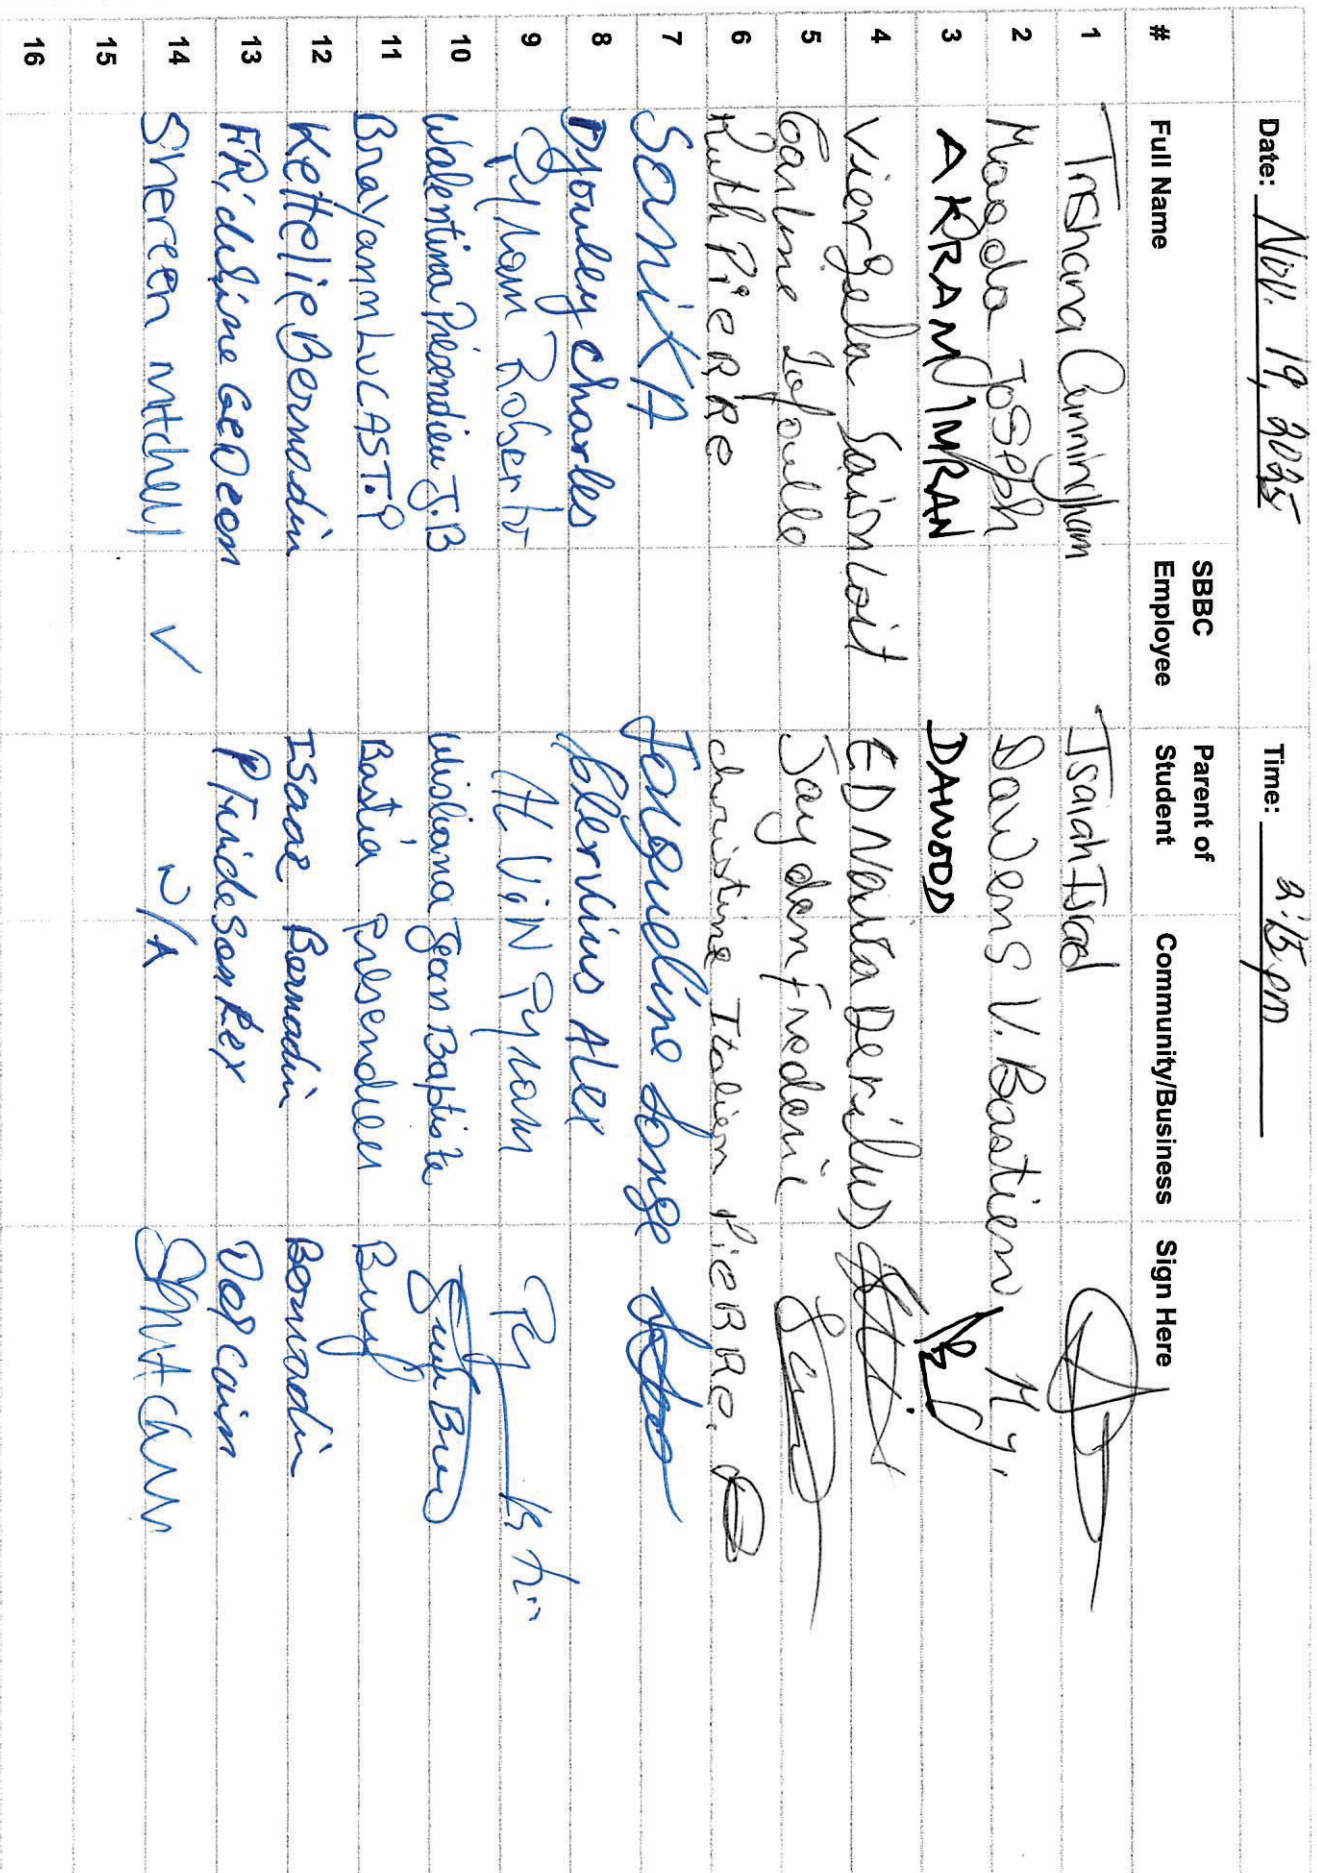 Date: Nov. 19, 2025 Time: 2:15 pm
# Full Name SBBC Employee Parent of Student Community/Business Sign Here
1 Trishana Cunningham Isaiah Israel
2 Magda Joseph Dawens V. Bastien M.J.
3 AKRAM IMRAN DAWOOD
4 Viergela Sainloit EDNaisa Derilus
5 Carline Lafaille Jayden Frederic
6 Ruth PieRRe christine Italien PieRRe.
7 SANIKA Jonqueline Longe
8 Djouley charles Clervius Alex
9 Pyram Roberto ALViN Pyram
10 Walentina Présendieu J.B Wisliana Jean Baptiste
11 Brayann LUCAST.P Bastia Présendieu
12 Kettelie Bernadin Isaac Bernadin Bernadin
13 FRideline GeDeon P/FrideSon Rex
14 Shereen Mitchell ✓ N/A
15
16